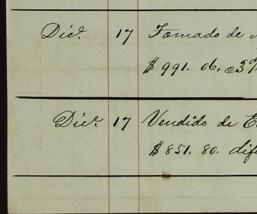 Dicꞏᵉ 17 Tomado de
$991. 06.
Dicꞏᵉ 17 Vendido de
$851. 80. dif